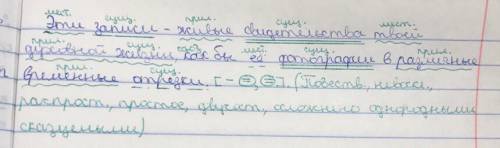 мест. сущ. прил. сущ. мест.
Эти записи - живые свидетельства твоей
прил. сущ. мест. сущ. прил.
духовной жизни, как бы её фотографии в различные
прил. сущ.
временные отрезки. [- =, =]. (Повеств., невоскл.,
распрост., простое, двусост., осложнено однородными
сказуемыми)